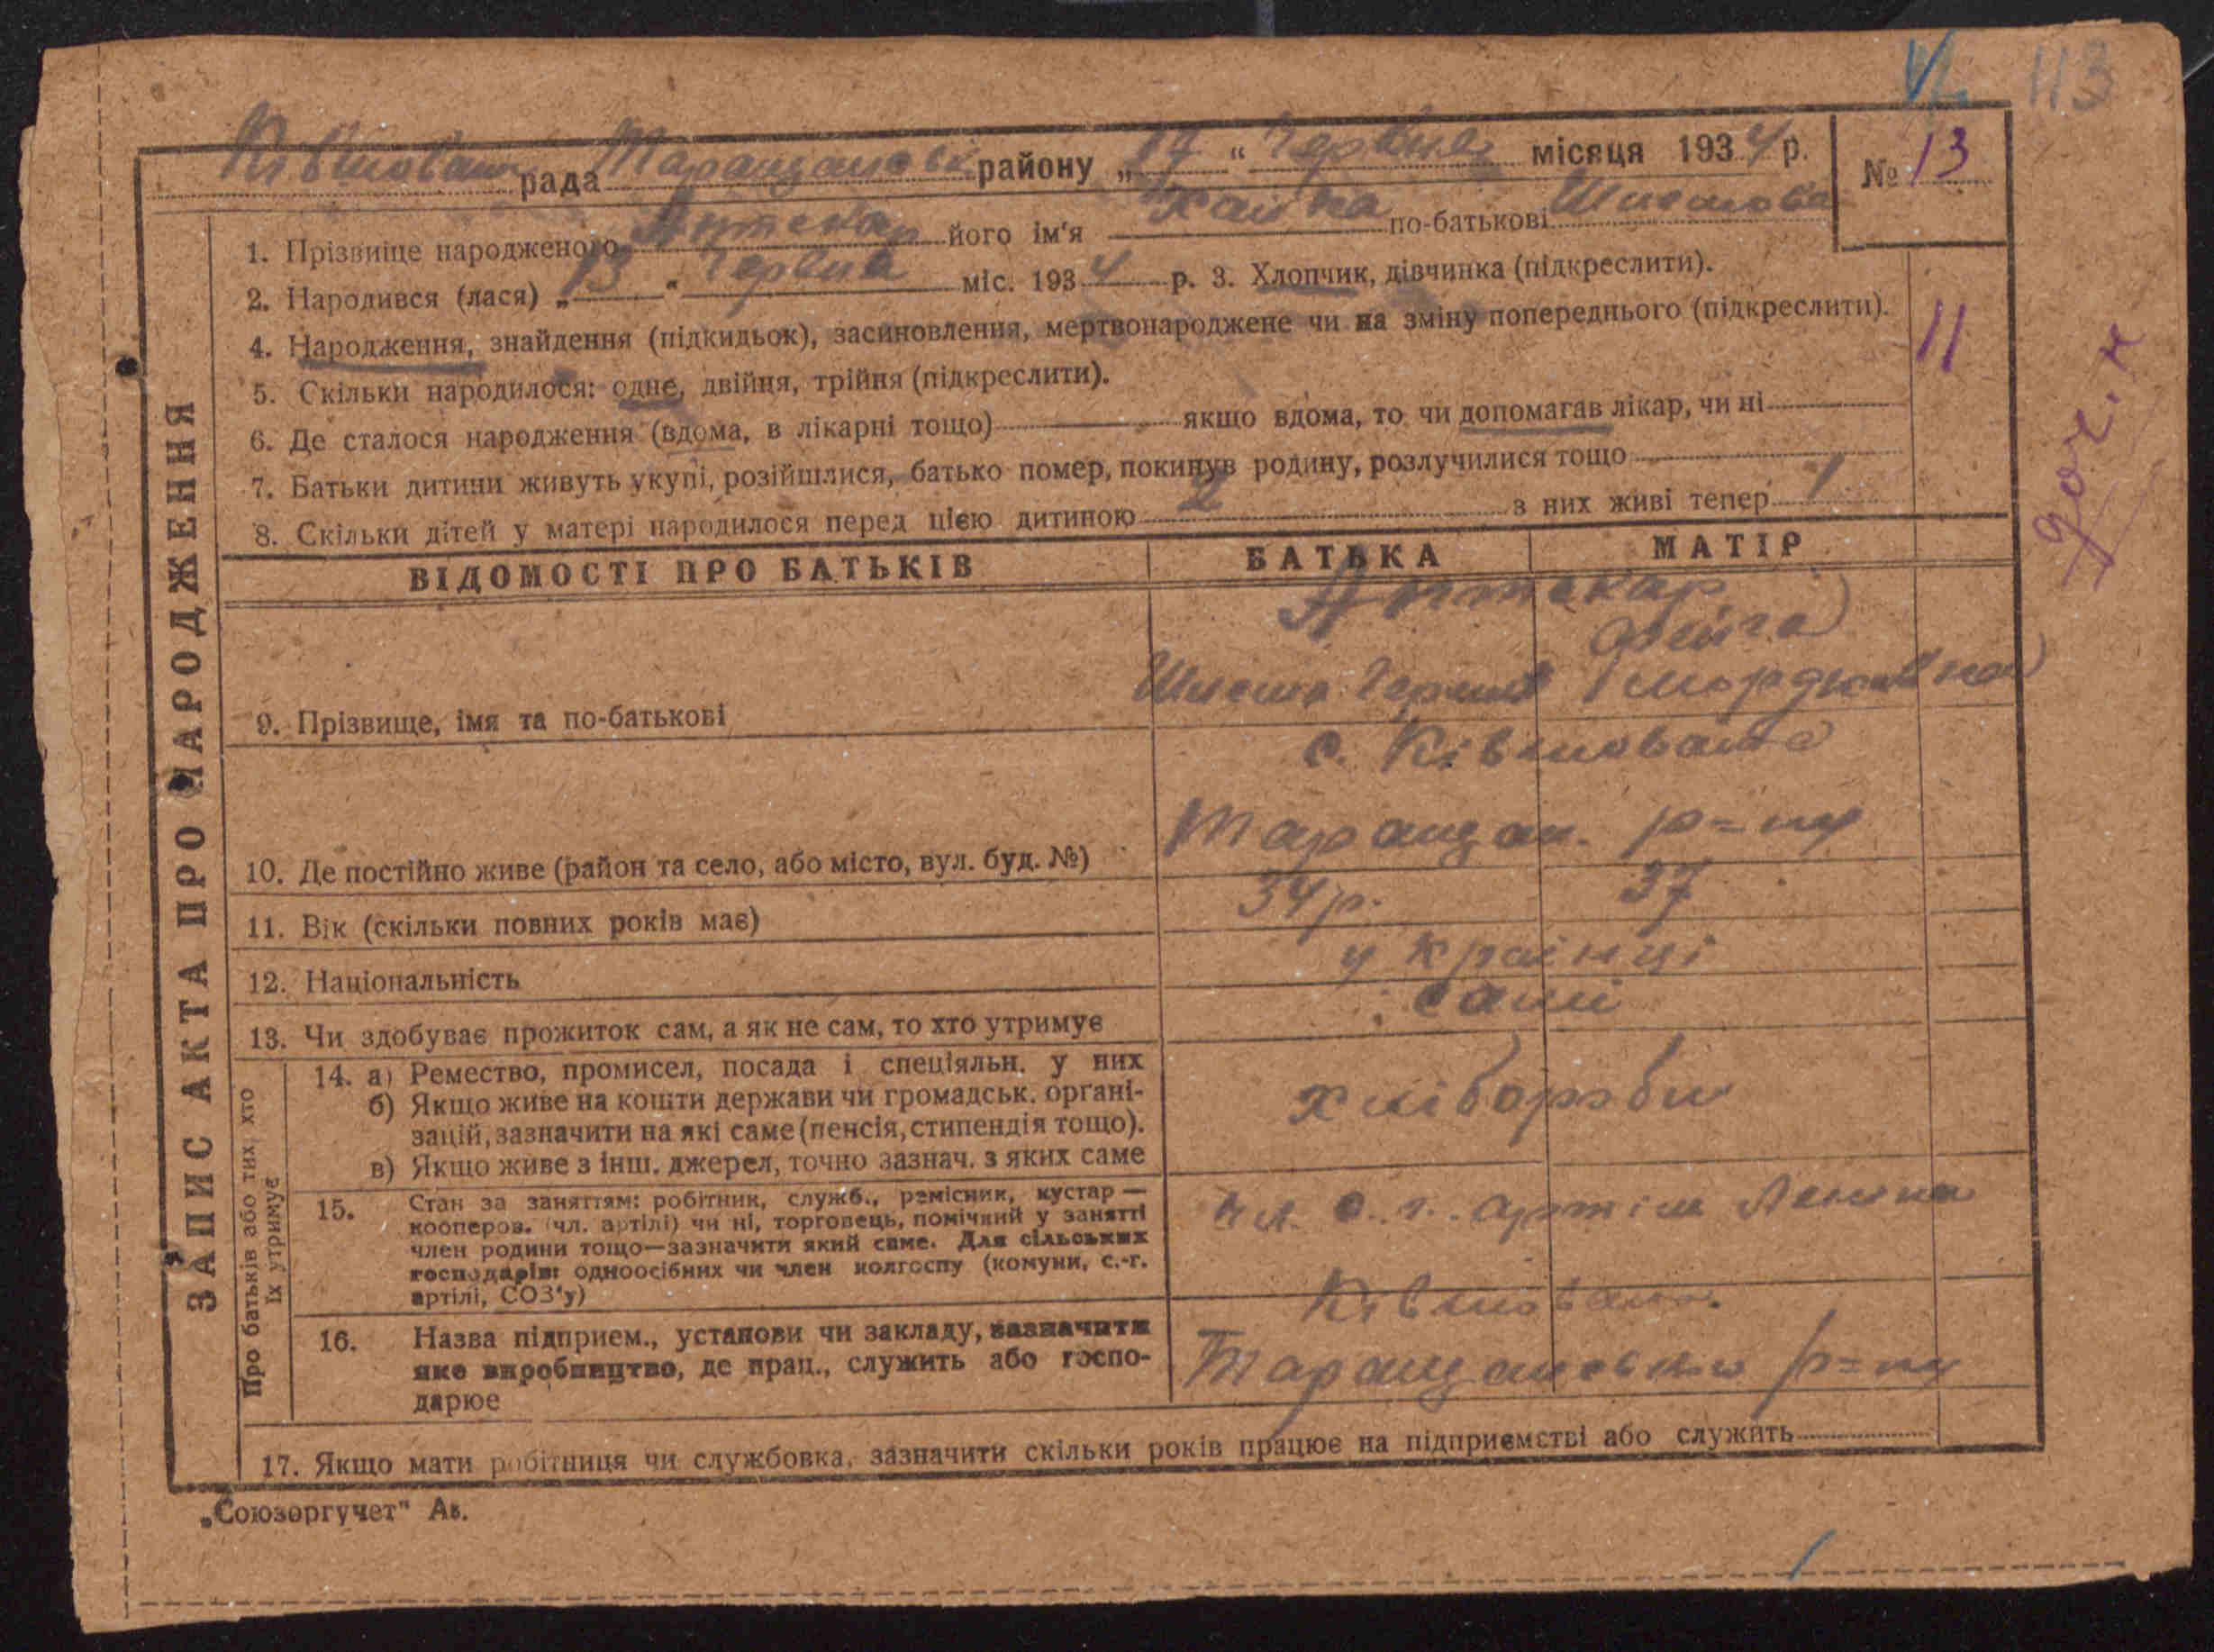 113
рада Таращанськ району „17“ Червня місяця 1934 р. № 13
1. Прізвище народженого Аптекар його ім'я Хайка по-батькові
2. Народився (лася) „13“ Червня міс. 1934 р. 3. Хлопчик, дівчинка (підкреслити).
4. Народження, знайдення (підкидьок), засиновлення, мертвонароджене чи на зміну попереднього (підкреслити).
11
5. Скільки народилося: одне, двійня, трійня (підкреслити).
6. Де сталося народження (вдома, в лікарні тощо) якщо вдома, то чи допомагав лікар, чи ні
7. Батьки дитини живуть укупі, розійшлися, батько помер, покинув родину, розлучилися тощо
8. Скільки дітей у матері народилося перед цією дитиною 2 з них живі тепер 1
ЗАПИС АКТА ПРО НАРОДЖЕННЯ
ВІДОМОСТІ ПРО БАТЬКІВ БАТЬКА МАТІР
Аптекар
Фейга
9. Прізвище, імя та по-батькові
с. Ківшовата
Таращан. р=ну
10. Де постійно живе (район та село, або місто, вул. буд. №)
11. Вік (скільки повних років має) 34 р. 37
12. Національність українці
13. Чи здобуває прожиток сам, а як не сам, то хто утримує самі
Про батьків або тих, хто
їх утримує
14. а) Ремество, промисел, посада і спеціяльн. у них
б) Якщо живе на кошти держави чи громадськ. органі-
зацій, зазначити на які саме (пенсія, стипендія тощо).
в) Якщо живе з інш. джерел, точно зазнач. з яких саме
хлібороби
15. Стан за заняттям: робітник, служб., ремісник, кустар —
кооперов. (чл. артілі) чи ні, торговець, помічний у занятті
член родини тощо—зазначити який саме. Для сільських
господарів: одноосібних чи член колгоспу (комуни, с.-г.
артілі, СОЗ'у)
чл. с. г. артіли Леніна
Ківшовата
16. Назва підприєм., установи чи закладу, зазначити
яке виробництво, де прац., служить або госпо-
дарює
Таращанського р=ну
17. Якщо мати робітниця чи службовка, зазначити скільки років працює на підприємстві або служить
„Союзоргучет" Ав.